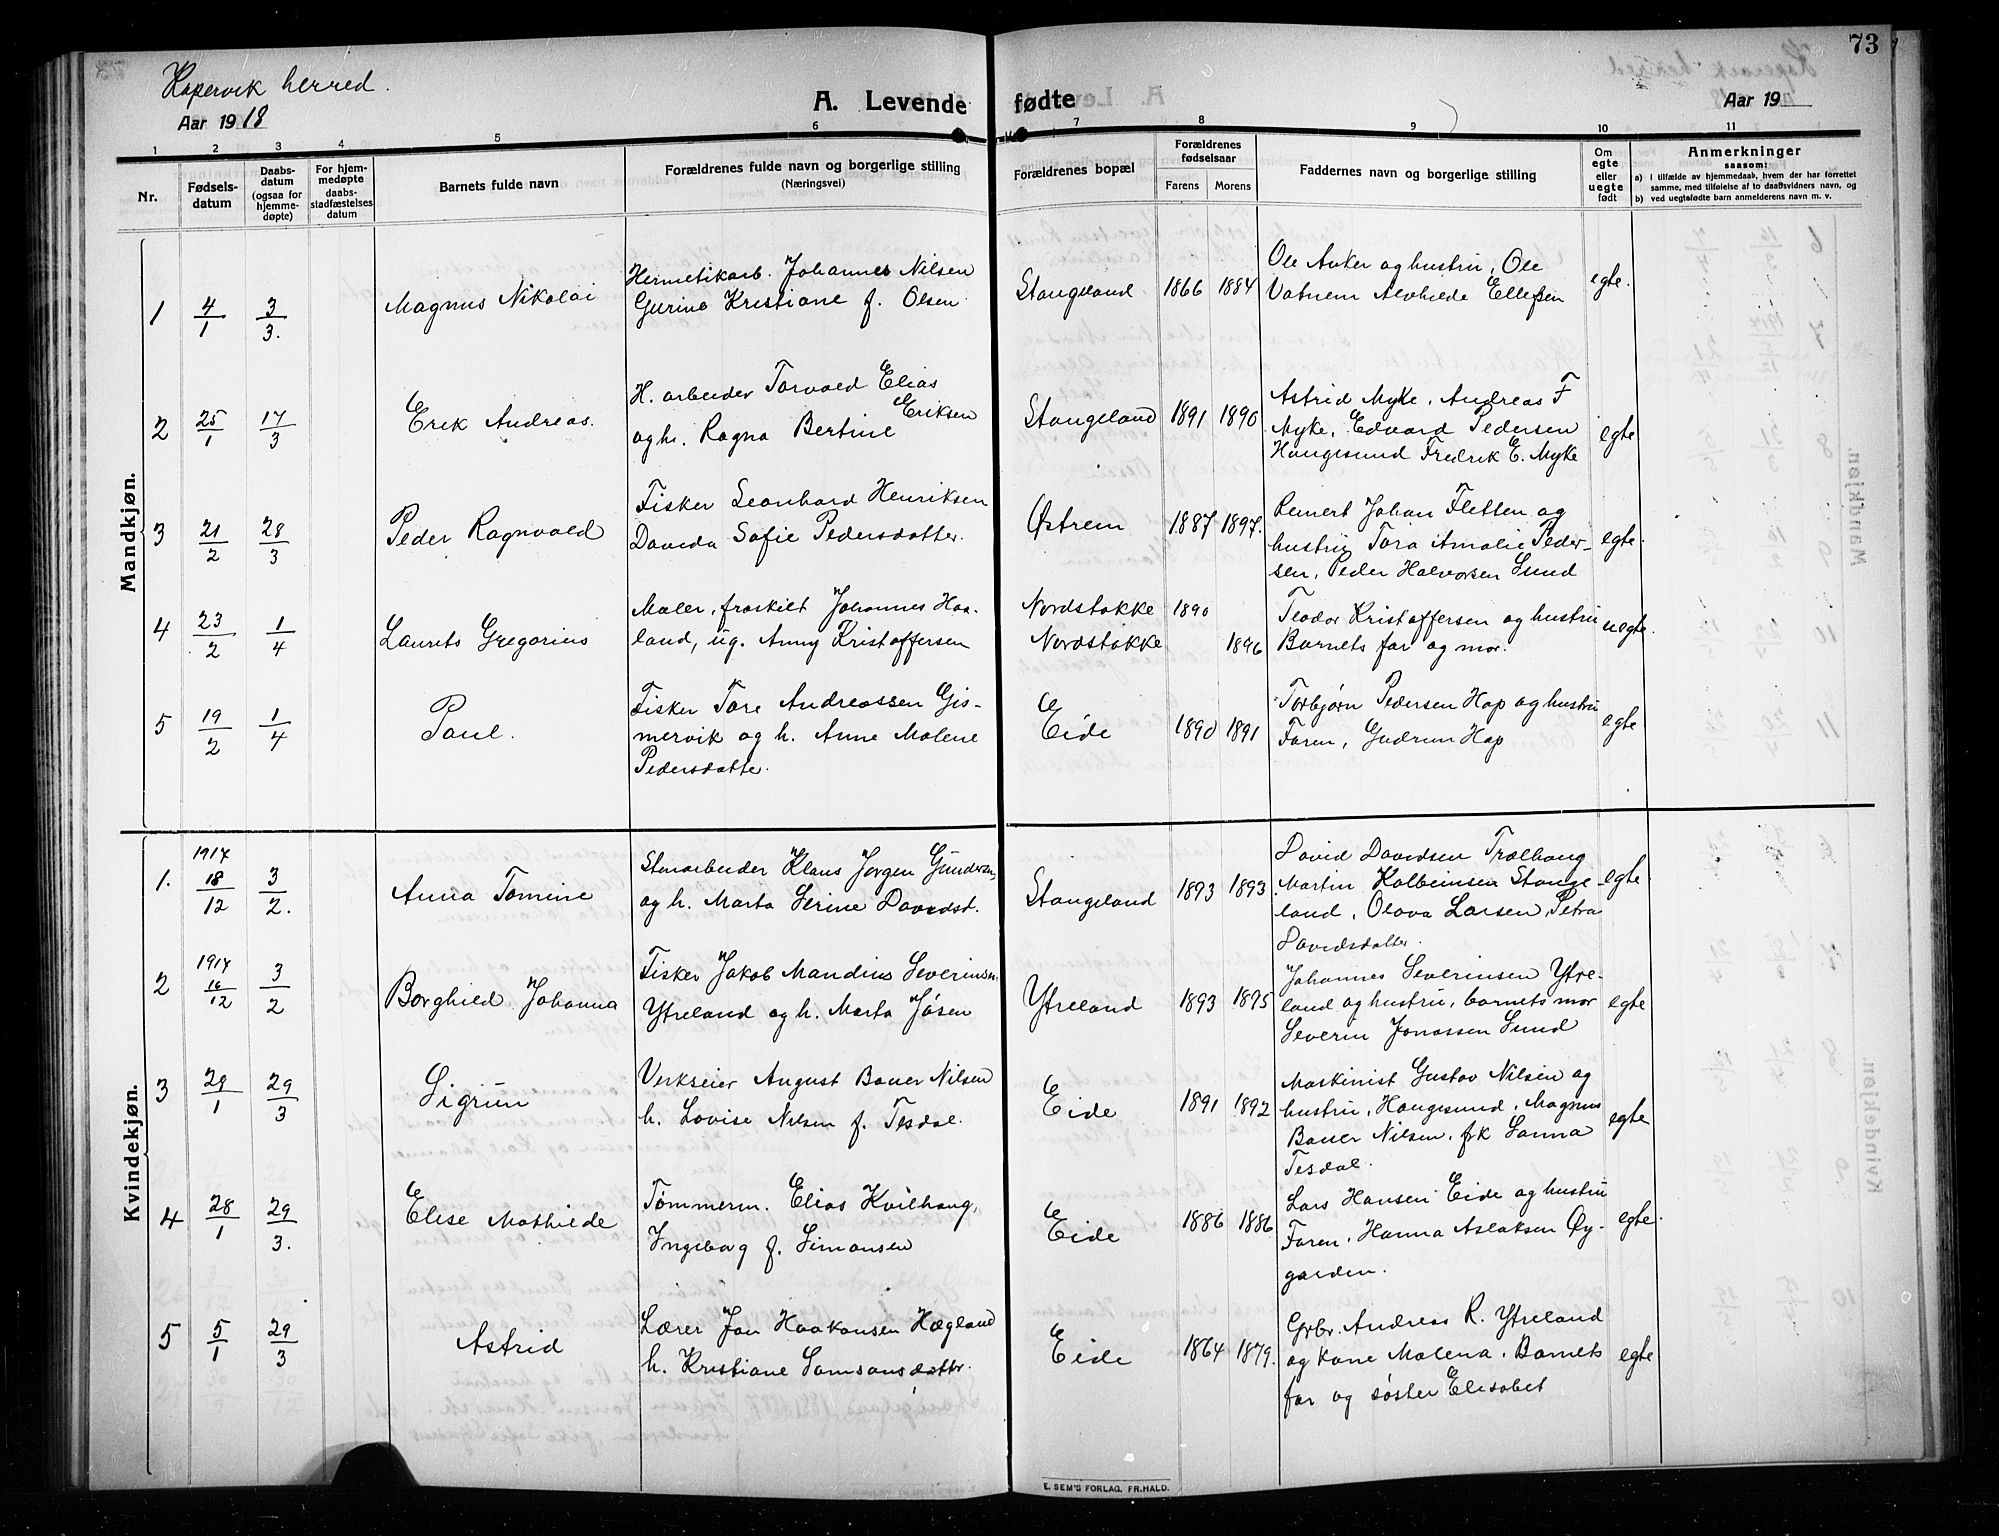 73
Kopervik herred.
Aar 1918
A. Levende fødte
Aar 19
1 2 3 4 5 6 7 8 9 10 11
Nr.
Fødsels-
datum
Daabs-
datum
(ogsaa for
hjemme-
døpte)
For hjem-
medøpte
daabs-
stadfæstelses
datum
Barnets fulde navn
Forældrenes fulde navn og borgerlige stilling
(Næringsvei)
Forældrenes bopæl
Forældrenes
fødselsaar
Farens Morens
Faddernes navn og borgerlige stilling
Om
egte
eller
uegte
født
Anmerkninger
saasom:
a) i tilfælde av hjemmedaab, hvem der har forrettet
samme, med tilføielse af to daabsvidners navn, og
b) ved uegtefødte barn anmelderens navn m. v.
Mandkjøn.
1 4/1 3/3. Magnus Nikolai
Hermetikarb. Johannes Nilsen
Gurine Kristiane f. Olsen.
Stangeland 1866 1884
Ole Anker og hustru, Ole
Vatnem Alvhilde Ellefsen
egte.
2 25/1 17/3 Erik Andreas.
H. arbeider Torvald Elias
Eriksen
og h. Ragna Bertine
Stangeland 1891 1890
Astrid Myke, Andreas F
Myke, Edvard Pedersen
Haugesund Fredrik E. Myke
egte
3 21/2 28/3 Peder Ragnvald
Fisker Leonhard Henriksen
Davida Sofie Pedersdatter.
Østrem 1887 1897.
Reinert Johan Fletten og
hustru Tora Amalie Peder-
sen, Peder Halvorsen Sund
egte.
4 23/2 1/4 Laurits Gregorius
Maler, fraskilt Johannes Haa-
land, ug. Anny Kristoffersen
Nordstokke 1890
Nordstokke 1896
Teodor Kristoffersen og hustru
Barnets far og mor.
uegte.
5 19/2 1/4 Paul.
Fisker Tore Andreassen Gis-
mervik og h. Anne Malene
Pedersdatte.
Eide 1890 1891
Torbjørn Pedersen Hop og hustru
Faren, Gudrun Hop
egte
Kvindekjøn.
1. 1917 18/12 3/2. Anna Tomine
Stenarbeider Klaus Jørgen Gundersen,
og h. Marta Serine Davidsd.
Stangeland 1893 1893
David Davidsen Trælhaug
Martin Kolbeinsen Stange-
land, Olava Larsen, Petra
Davidsdatter.
egte
2 1917 16/12 3/2 Borghild Johanna
Fisker Jakob Mandius Severinsen
Ytreland og h. Marta Jósen
Ytreland 1893 1895
Johannes Severinsen Ytre-
land og hustru, barnets mor
Severin Jonassen Sund
egte
3 29/1 29/3 Sigrun
Verkseier August Bauer Nilsen
h. Lovise Nilsen f. Tesdal.
Eide 1891 1892
Maskinist Gustav Nilsen og
hustru, Haugesund, Magnus
Bauer Nilsen, frk Sanna
Tesdal.
egte
4 28/1 29/3. Elise Mathilde
Tømmerm. Elias Kvilhaug,
Ingeborg f. Simonsen
Eide 1886 1886
Lars Hansen Eide og hustru
Faren, Hanna Aslaksen Øy-
garden.
egte.
5 5/1 29/3 Astrid
Lærer Jon Haakonsen Hægland
h. Kristiane Samsonsdattr.
Eide 1864 1879.
Grbr. Andreas R. Ytreland
og kone Malena, Barnets
far og søster Elisabet
egte
E. SEM'S FORLAG, FR.HALD.